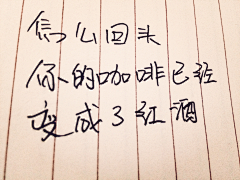 怎么回头
你的咖啡已经
变成了红酒